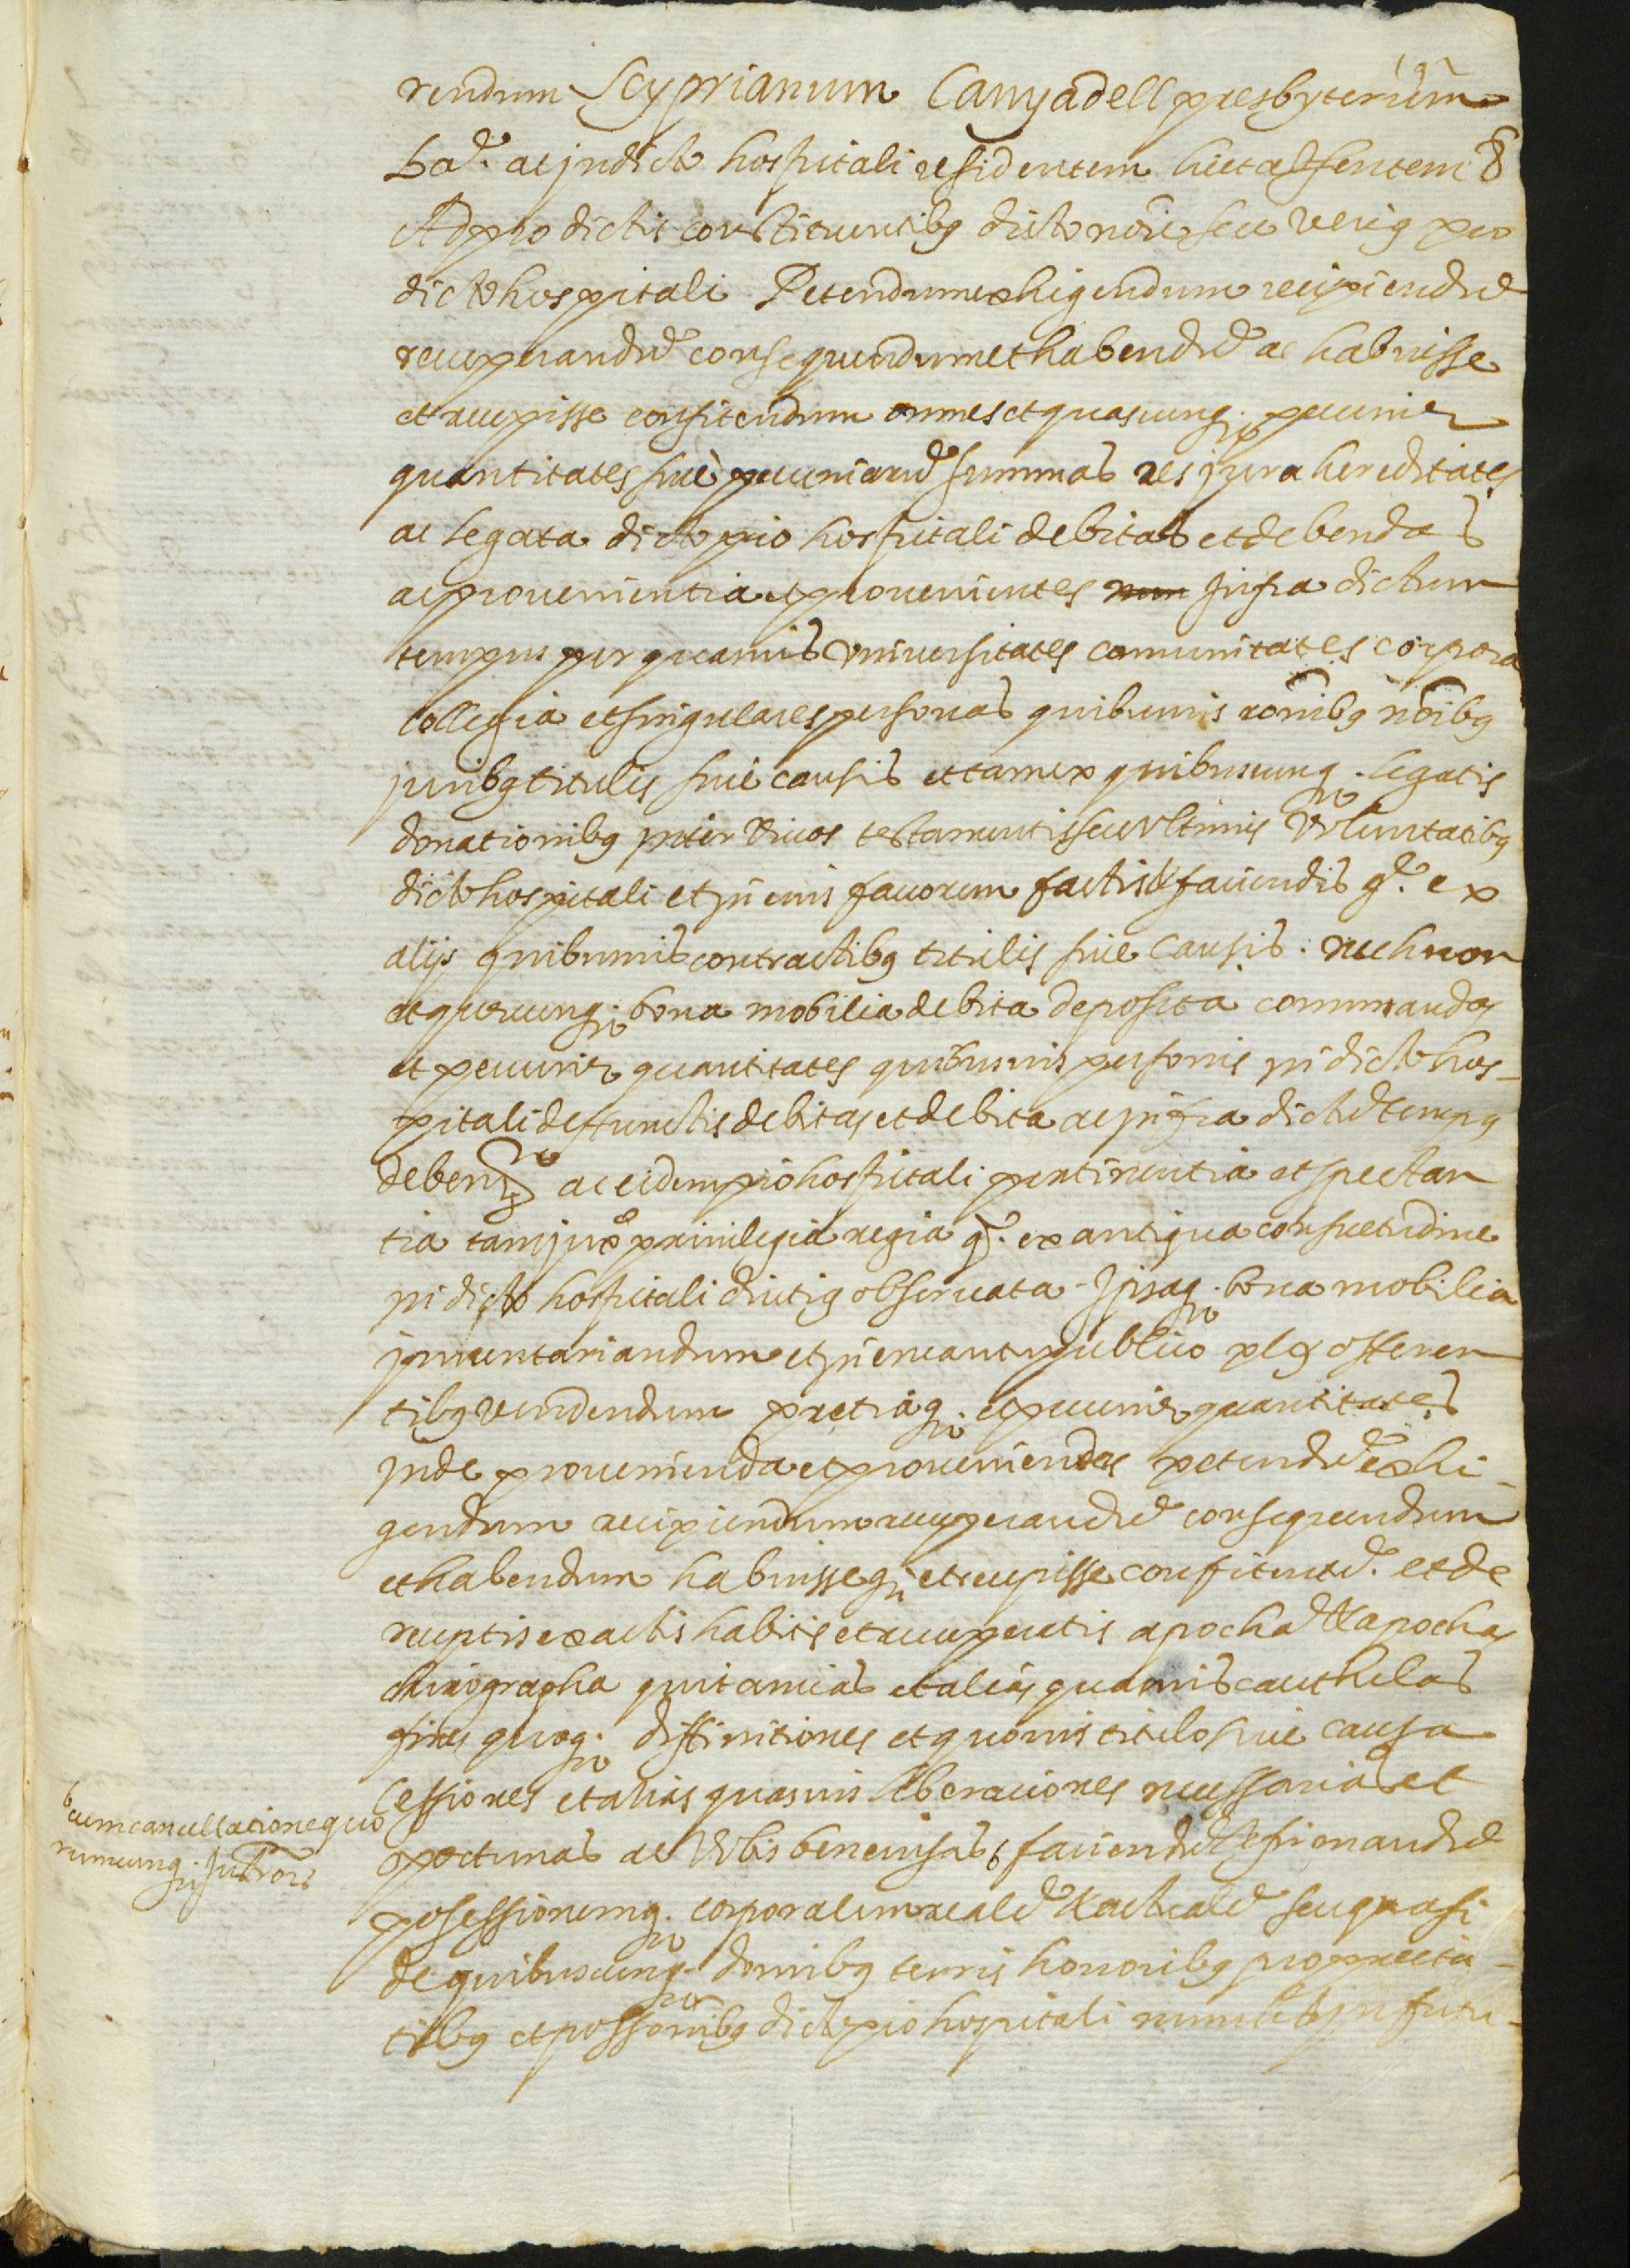 rendum Scyprianum Canyadell presbyterum
Bag. ac in dicto hospitali residentem licet absentem &
Ad pro dictis constituentibg dicto noie seu verig pro
dicto hospitali Petendum exhigendum recipiendū
recuperandū consequendum et habendū ac habuisse
et recepisse confitendum omnes et quascunq. pecunie
quantitates sive pecuniarū summas res jura hereditates
ac legata dicto pio hospitali debitas et debendas
ac provenientia et provenientes infra dictum
tempus per quamvis universitates comunitates corpora
collegia et singulares personas quibusvis ronibg noibg
juribg titulis sive causis et tam ex quibuscunq. legatis
donationibg inter vivos testamentis seu ultimis voluntatibg
dicto hospitali et in eius favorem factis et faciendis q. ex
alijs quibusvis contractibg titulis sive causis. nechnon
et quecunq. bona mobilia debita deposita commandas
et pecunie quantitates quibusvis personis in dicto hos-
pitali defunctis debitas et debita ac infra dictū tempg
deben ac eidem pio hospitali pertinentia et spectan
tia tam juxᵃ privilegia regia q. ex antiqua consuetudine
in dicto hospitali diutig observata. Ipsaq. bona mobilia
inventariandum et in encantu publico plg offeren
tibg vendendum pretiaq. et pecunie quantitates
inde provenienda et proveniendas petendū exhi-
gendum recipiendum recuperandū consequendum
et habendum habuisseq. et recepisse confitendū. et de
receptis exactis habitis et recuperatis apocham et apochas
chirographa quitancias et alias quasvis cauthelas
fines quoq. diffinitiones et quovis titulo sive causa
cessiones et alias quasvis liberaciones necessarias et
oportunas ac vobis bene visas faciendū et firmandū
cum cancellatione quo
rumcunq. instrors
posessionemq. corporalem realē et actualē seu quasi
de quibuscunq. domibg terris honoribg proprieta-
tibg et possonibg dicto pio hospitali nunc et in futu-